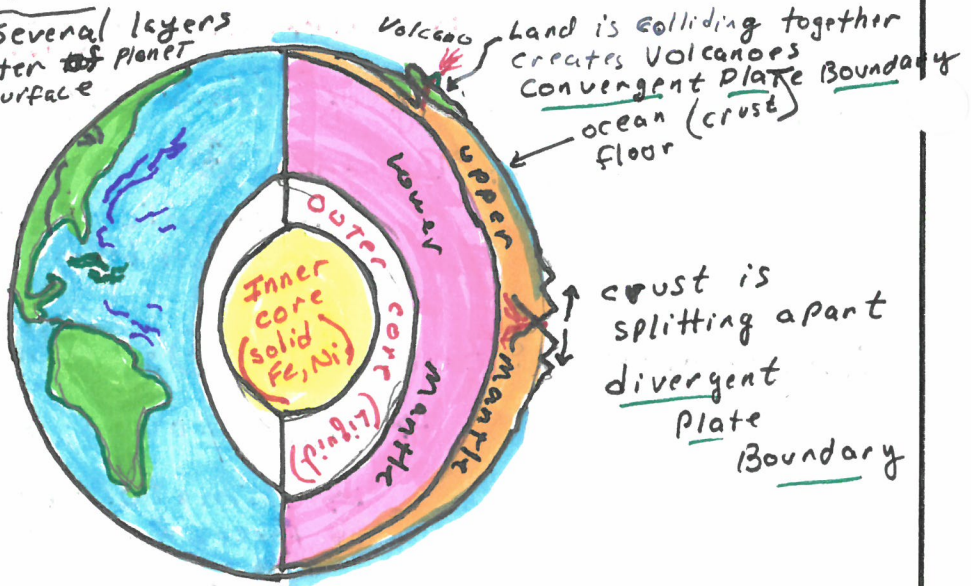 several layers
of planet
surface
Volcano
Land is colliding together
creates Volcanoes
Convergent Plate Boundary
ocean (crust)
floor
upper
mantle
Lower
mantle
Outer core
(liquid)
Inner
core
(solid
Fe, Ni)
crust is
splitting apart
divergent
Plate
Boundary